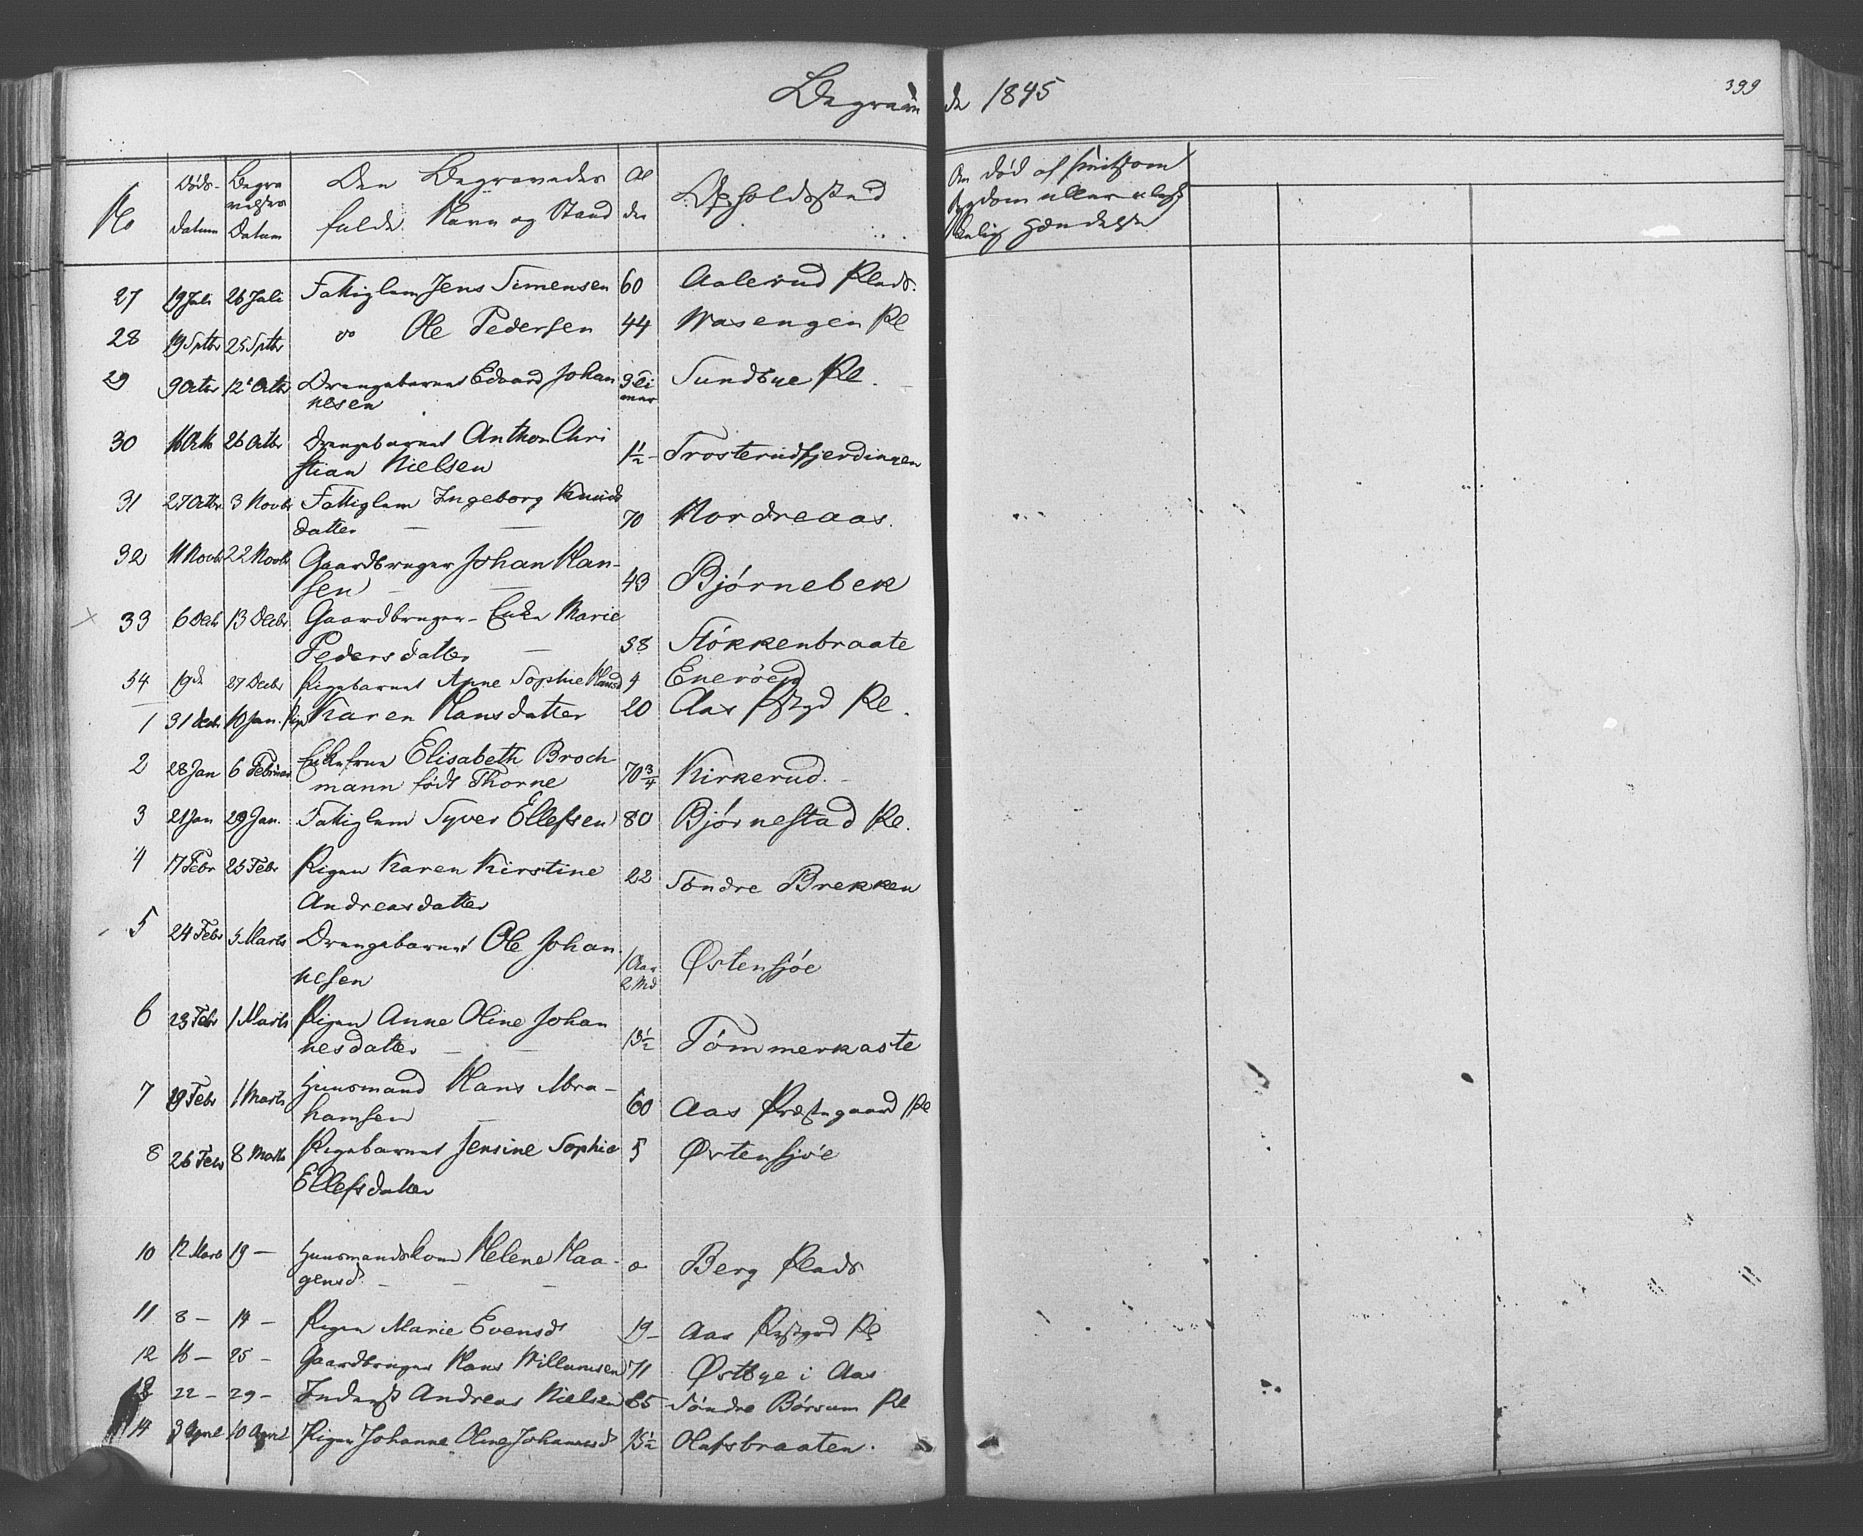 Begravede 1845
399
No
Døds-
datum
Begra
velses
Datum
Den Begravedes
fulde Navn og Stand
Al
der
Opholdsstad
Om død af smitsom
sygdom eller ulyk
kelig Hændelse
27 19 Juli 26 Juli Fattiglem Jens Simensen 60 Aalerud Plads.
28 19 Sptbr 25 Sptbr do Ole Pedersen 44 Wasengen Pl
29 9 Octbr 12 Octb Drengebarnet Edvard Johan
nesen 3 Ti
mer Sundbye Pl.
30 16 Octb 26 Octbr Drengebarnet Anthon Chri
stian Nielsen 1½ - Trosterudfjerdingen
31 27 Octbr 3 Novbr Fattiglem Ingeborg Knuds
datter — — 70 Nordreaas.
32 11 Novbr 22 Novbr Gaardbruger Johan Han-
sen — — 43 Bjørnebek
33 6 Decb 13 Decbr Gaardbruger-Enke Marie
Pedersdatter — 38 Støkkenbraate
34 19 d 27 Decbr Pigebarnet Anne Sophie Hansd 4 Enerøed
1 31 Decbr 10 Jan. Pige Karen Hansdatter 20 Aas Pstgd Pl.
2 28 Jan 6 Februar Enkefrue Elisabeth Broch
mann født Thorne 70¾ Kirkerud. -
3 21 Jan 29 Jan. Fattiglem Syver Ellefsen 80 Bjørnestad Pl.
4 17 Febr 25 Febr Pigen Karen Kirstine
Andreasdatter 22 Søndre Brekken
5 24 Febr 5 Marts Drengebarnet Ole Johan
nesen 1 Aar
2 Md Østensjøe
6 23 Febr 1 Marts Pigen Anne Oline Johan
nesdatter — — 13½ Tømmerkaste
7 19 Febr 1 Marts Huusmand Hans Abra-
hamsen — 60 Aas Præstegaard Pl
8 26 Febr 8 Marts Pigebarnet Jensine Sophie
Ellefsdatter 5 Østensjøe
10 12 Marts 19 — Huusmandskone Helene Haa-
gensd - — - o Berg Plads
11 8 — 14 — Pigen Marie Evensd 19 - Aas Pstgrd Pl
12 16 — 25 - Gaardbruger Hans Willumsen 71 Østbye i Aas
13 22 — 29 - Inderst Andreas Nielsen 65 Søndre Børsum Pl
14 3 April 10 April Pigen Johanne Oline Johannesd 15½ Olafsbraaten.